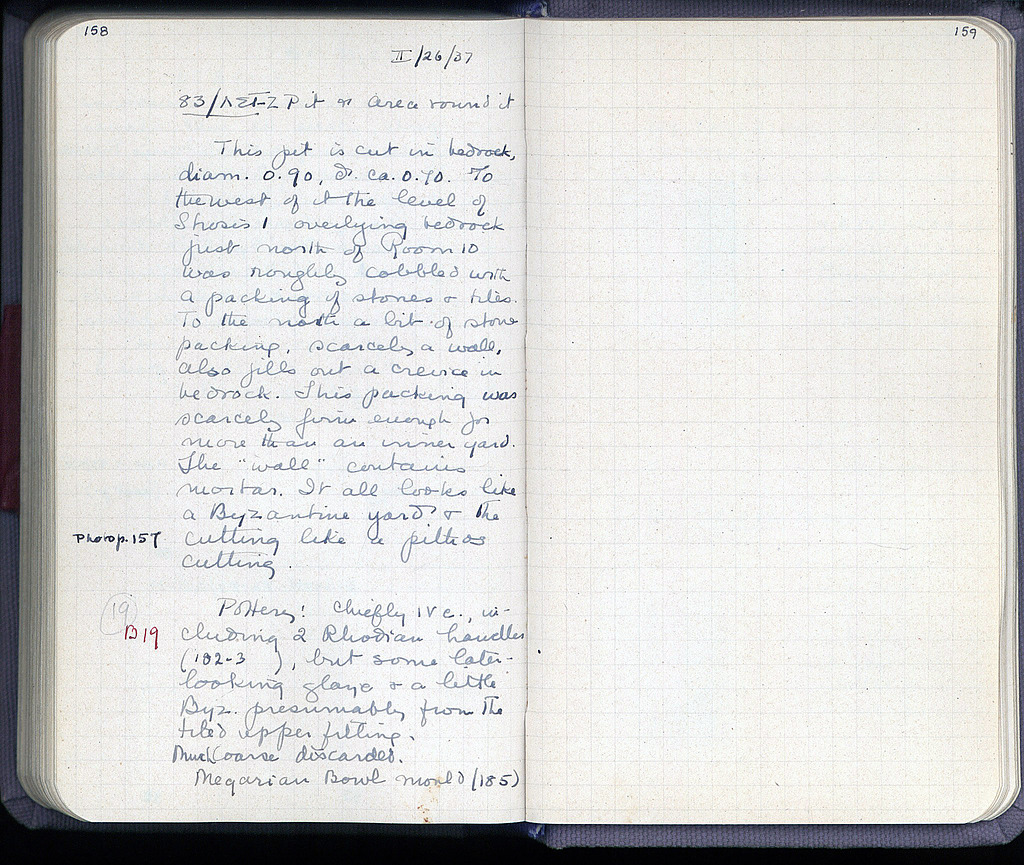 158
159
II/26/37
83/ΛΣΤ-Ζ Pit & area round it
This pit is cut in bedrock,
diam. 0.90, d. ca. 0.70. To
the west of it the level of
Strosis 1 overlying bedrock
just north of Room 10
was roughly cobbled with
a packing of stones & tiles.
To the north a bit of stone
packing, scarcely a wall,
also fills out a crevice in
bedrock. This packing was
scarcely firm enough for
more than an inner yard.
The "wall" contains
mortar. It all looks like
a Byzantine yard & the
Photo p. 157 cutting like a pithos
cutting.
19
B19
Pottery: Chiefly IV c., in-
cluding 2 Rhodian handles
(182-3 ), but some later-
looking glaze & a little
Byz. presumably from the
tiled upper filling.
Much coarse discarded.
Megarian Bowl mould (185)